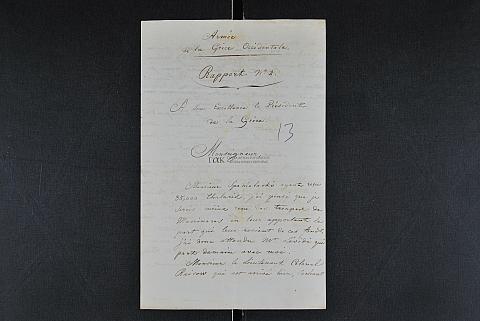 Armée
de la Grèce Occidentale
Rapport Nº 2.
A Son Excellence le Président
de la Grèce
13
Monseigneur
ΓΑΚ
Monsieur ayant reçu
35,000 j'ai pensé que je
serais mieux reçu des troupes de
en leur apportant la
part qui leur revient de ces fonds,
j'ai donc attendu Mr qui
parte demain avec moi.
Monsieur le Lieutenant Colonel
qui est arrivé hier,